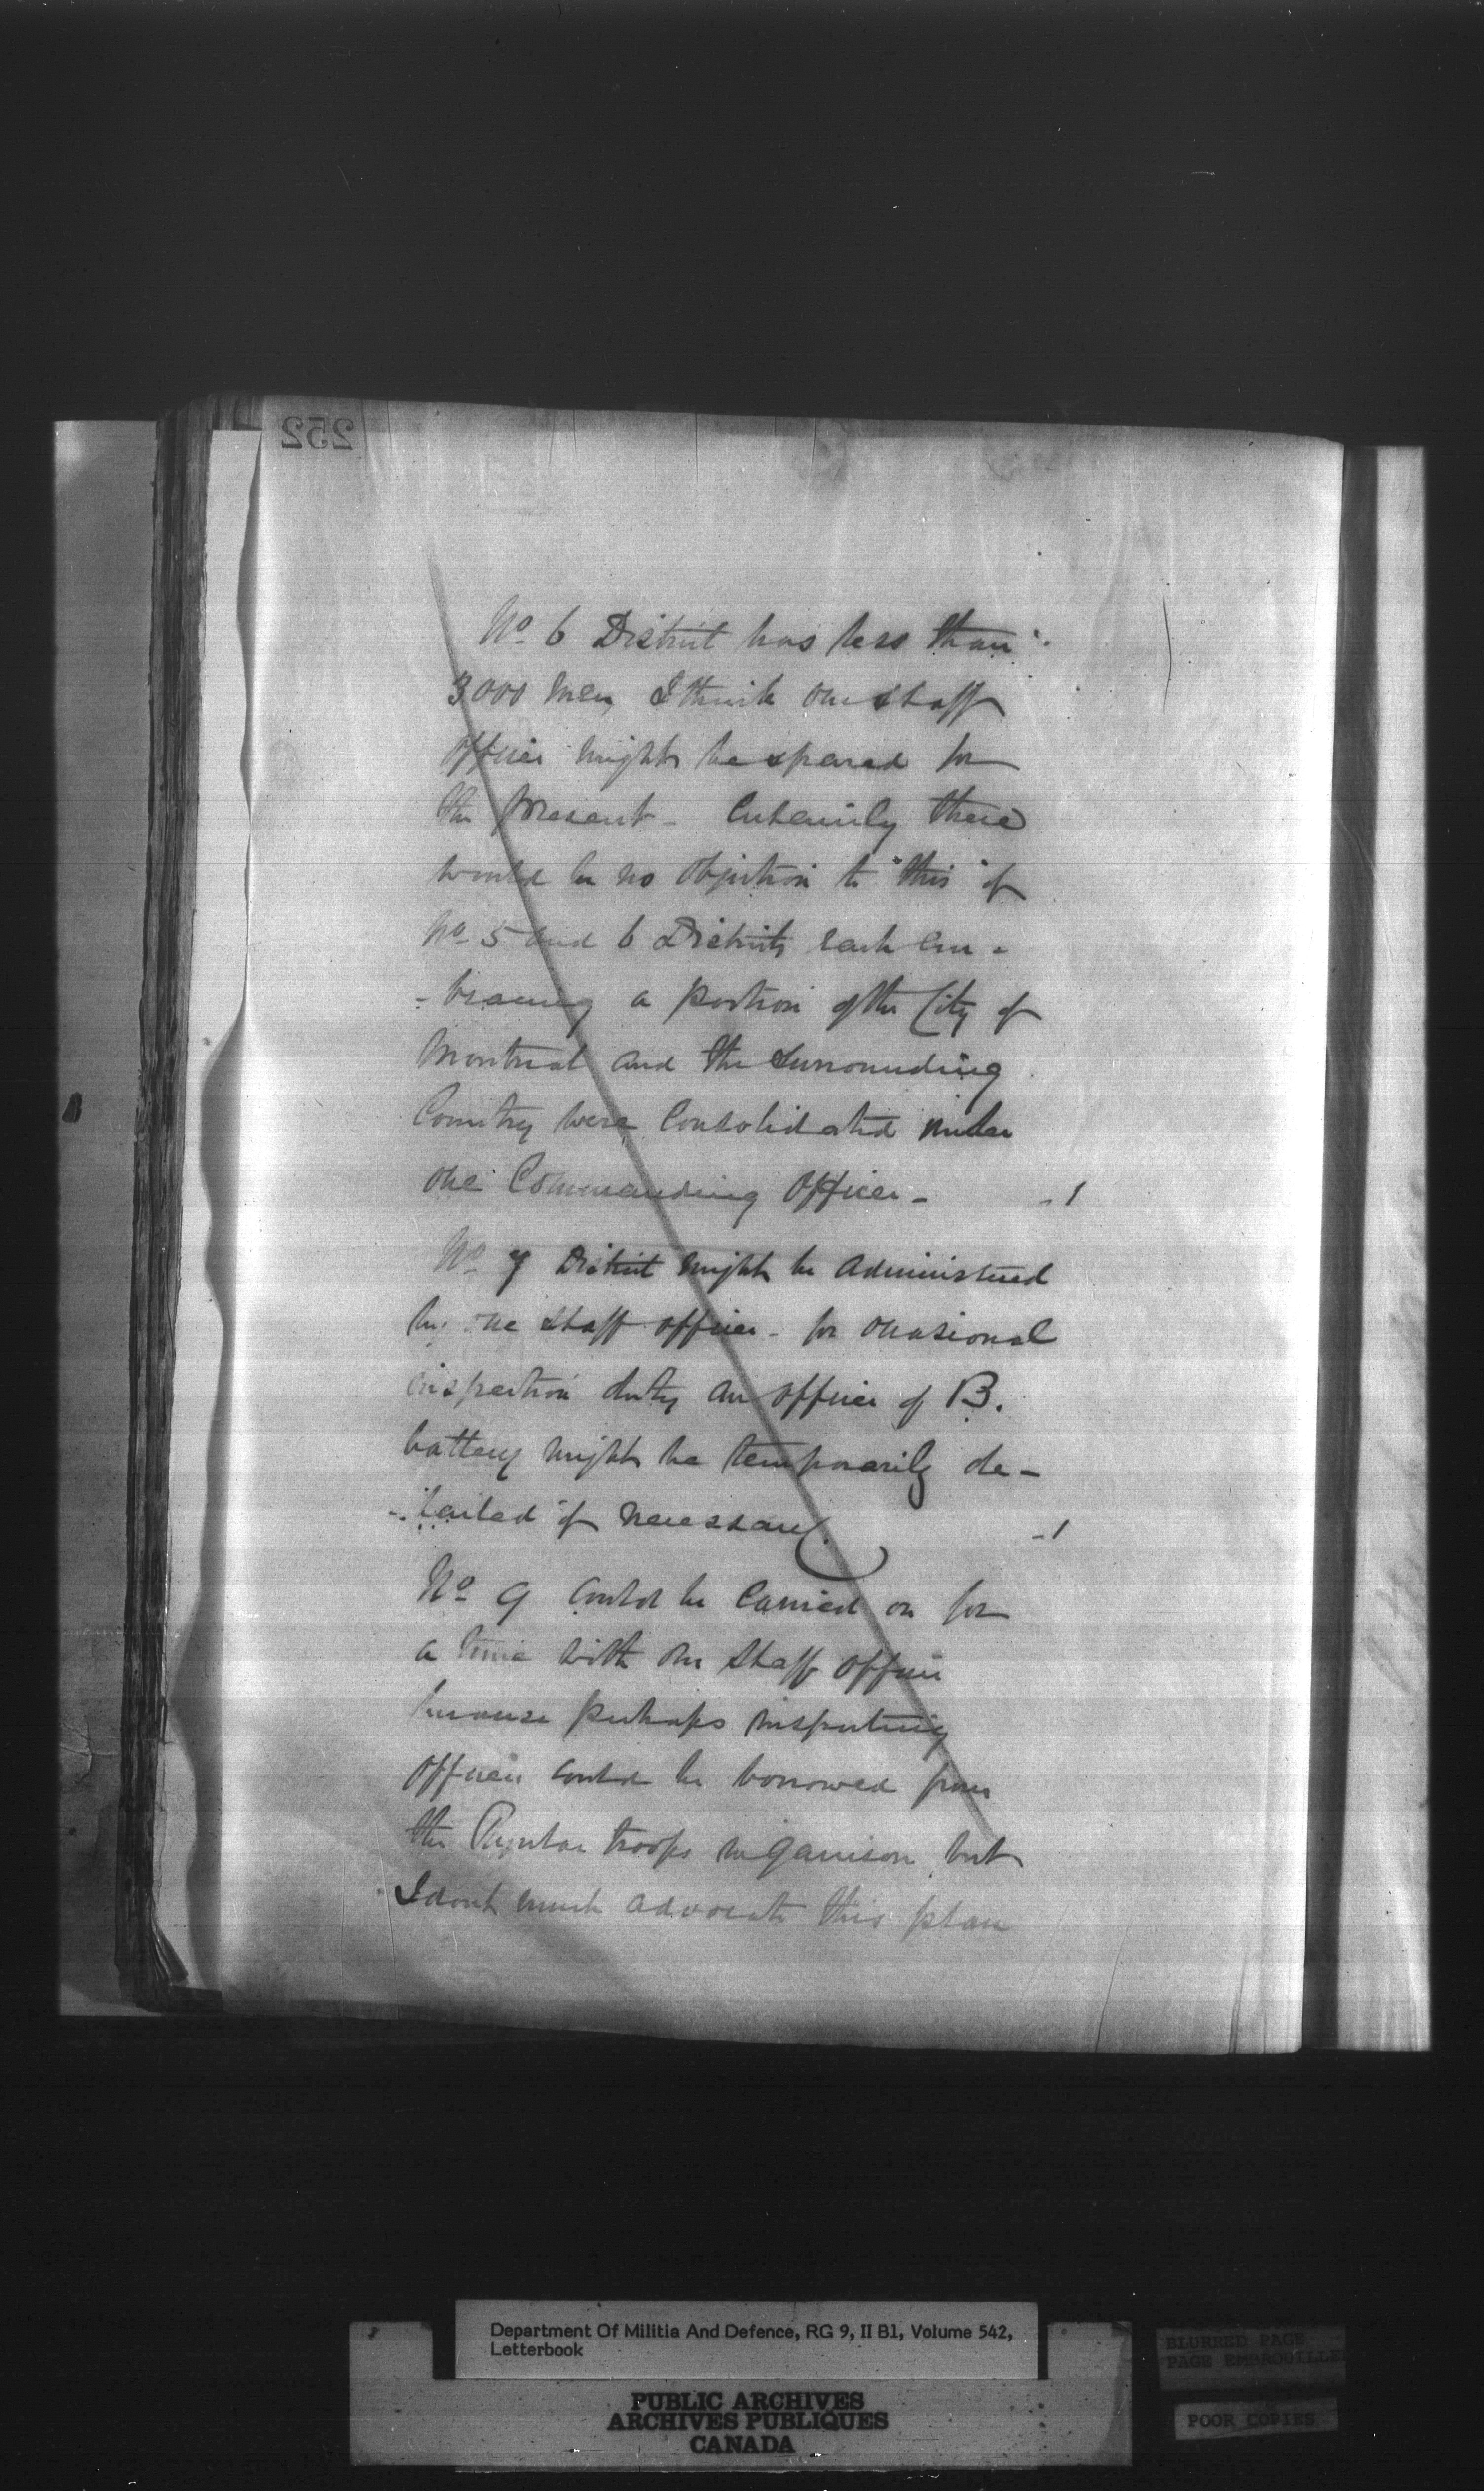 252
No. 6 District has less than
3000 men, I think one staff
officer might be spared for
the present - Certainly there
would be no objection to "this" if
No. 5 and 6 Districts each em-
-bracing a portion of the City of
Montreal and the surrounding
Country were Consolidated under
one Commanding Officer - -1
No. 7 District might be administered
by one staff officer - for occasional
inspection duty an officer of B.
battery might be temporarily de-
-tailed if necessary. -1
No. 9 could be carried on for
a time with one staff officer
because perhaps inspecting
officers could be borrowed from
the Regular troops in garrison but
I dont much advocate this plan
Department Of Militia And Defence, RG 9, II B1, Volume 542,
Letterbook
PUBLIC ARCHIVES
ARCHIVES PUBLIQUES
CANADA
BLURRED PAGE
PAGE EMBROUILLE
POOR COPIES